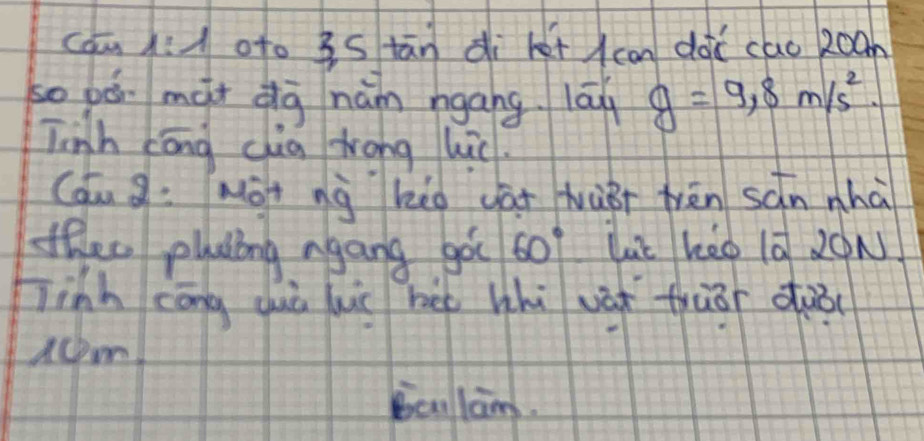 Câu 1: 1 oto 3,5 tấn đi hết 1 con dốc cao 200m
so với mặt đg nằm ngang. lấy g = 9,8 m/s².
Tính công của trọng lực.
Câu 2: Một ng kéo vật trượt trên sàn nhà
theo phương ngang góc 60° lực kéo là 20N.
Tính công của lực kéo khi vật trượt được
10m.
Bài làm.